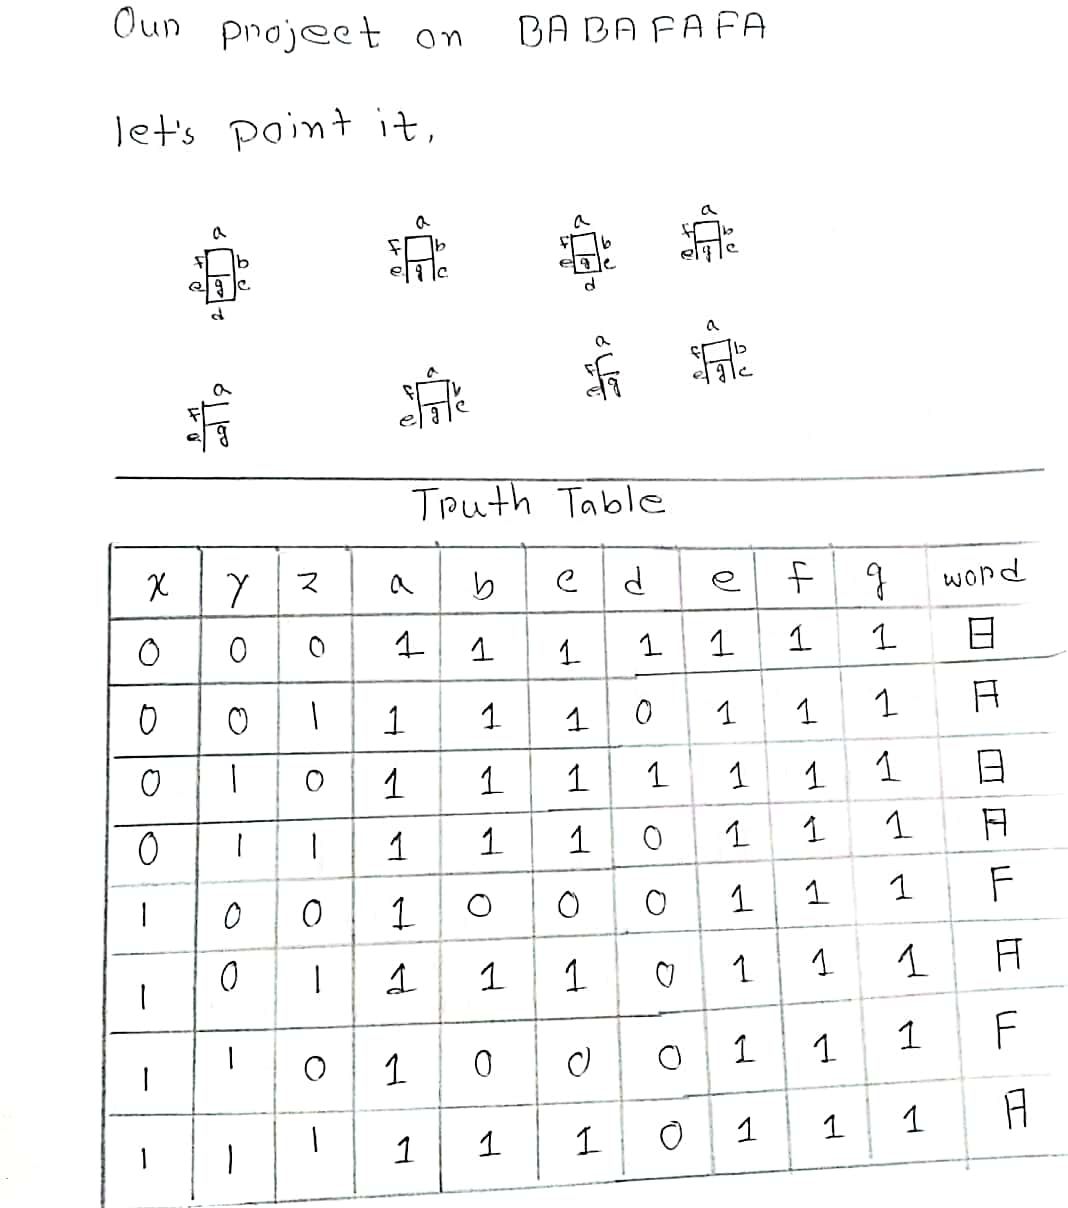 Our project on BABAFAFA
let's point it,
a a a a
f b f b f b f b
e g c e g c e g c e g c
d d
a a a a
f f b f f b
e g e g c e g e g c
Truth Table
x y z a b c d e f g word
0 0 0 1 1 1 1 1 1 1 B
0 0 1 1 1 1 0 1 1 1 A
0 1 0 1 1 1 1 1 1 1 B
0 1 1 1 1 1 0 1 1 1 A
1 0 0 1 0 0 0 1 1 1 F
1 0 1 1 1 1 0 1 1 1 A
1 1 0 1 0 0 0 1 1 1 F
1 1 1 1 1 1 0 1 1 1 A